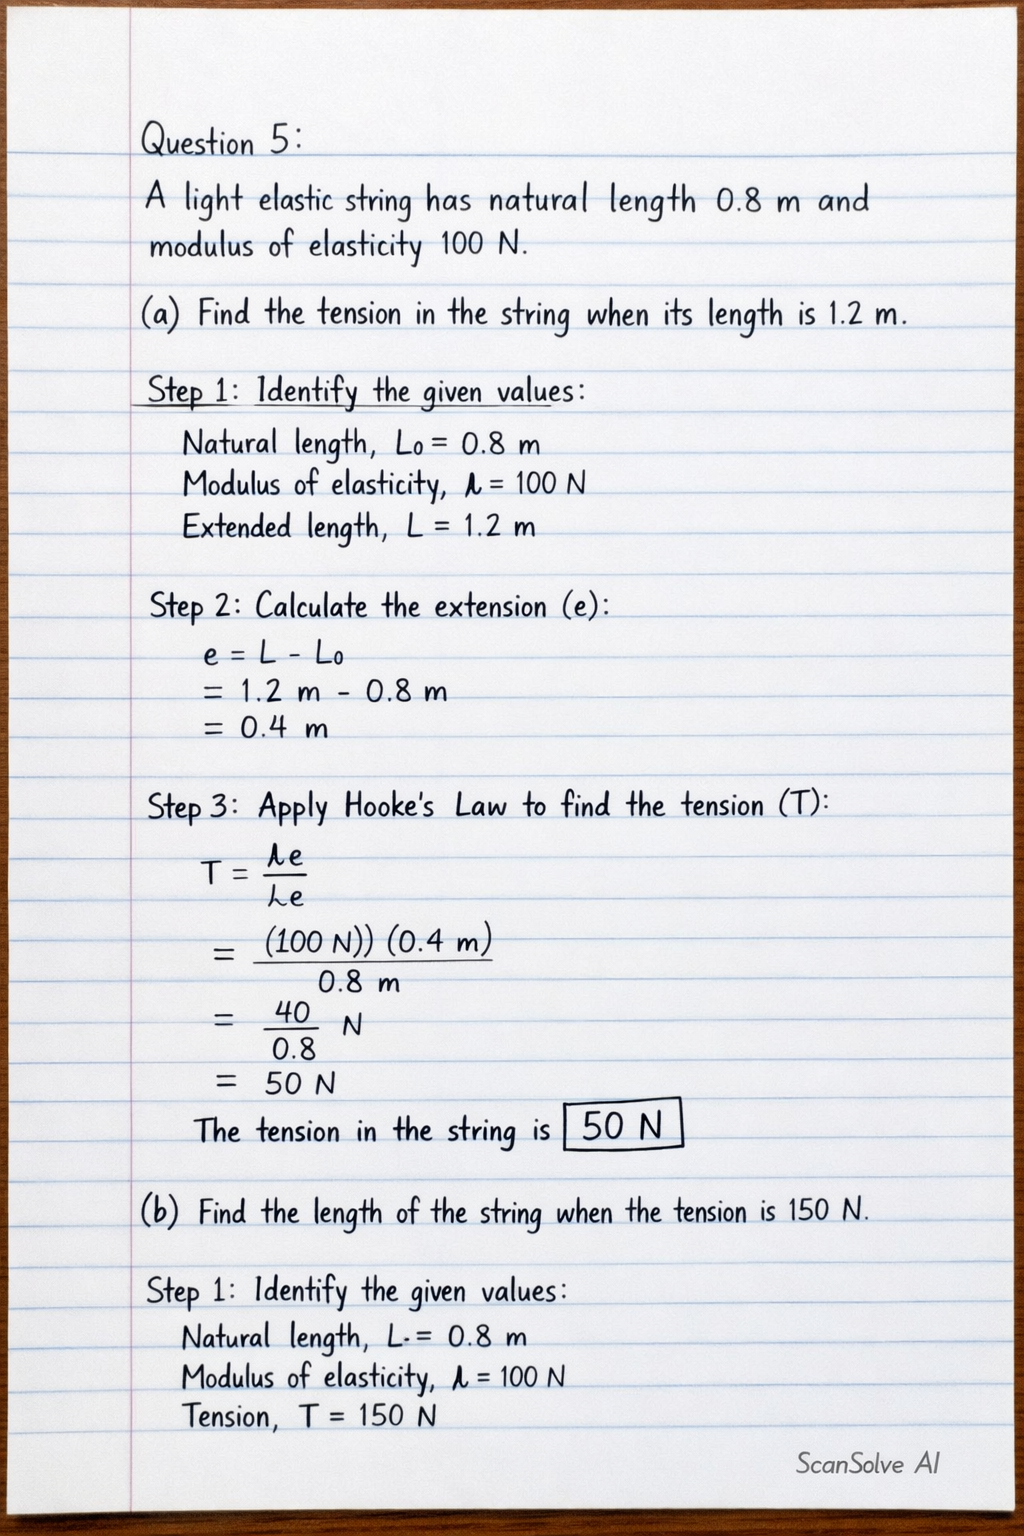 Question 5:
A light elastic string has natural length 0.8 m and
modulus of elasticity 100 N.
(a) Find the tension in the string when its length is 1.2 m.
Step 1: Identify the given values:
Natural length, L₀ = 0.8 m
Modulus of elasticity, λ = 100 N
Extended length, L = 1.2 m
Step 2: Calculate the extension (e):
e = L - L₀
= 1.2 m - 0.8 m
= 0.4 m
Step 3: Apply Hooke's Law to find the tension (T):
T = λe
Le
= (100 N)) (0.4 m)
0.8 m
= 40 N
0.8
= 50 N
The tension in the string is 50 N
(b) Find the length of the string when the tension is 150 N.
Step 1: Identify the given values:
Natural length, L. = 0.8 m
Modulus of elasticity, λ = 100 N
Tension, T = 150 N
ScanSolve AI